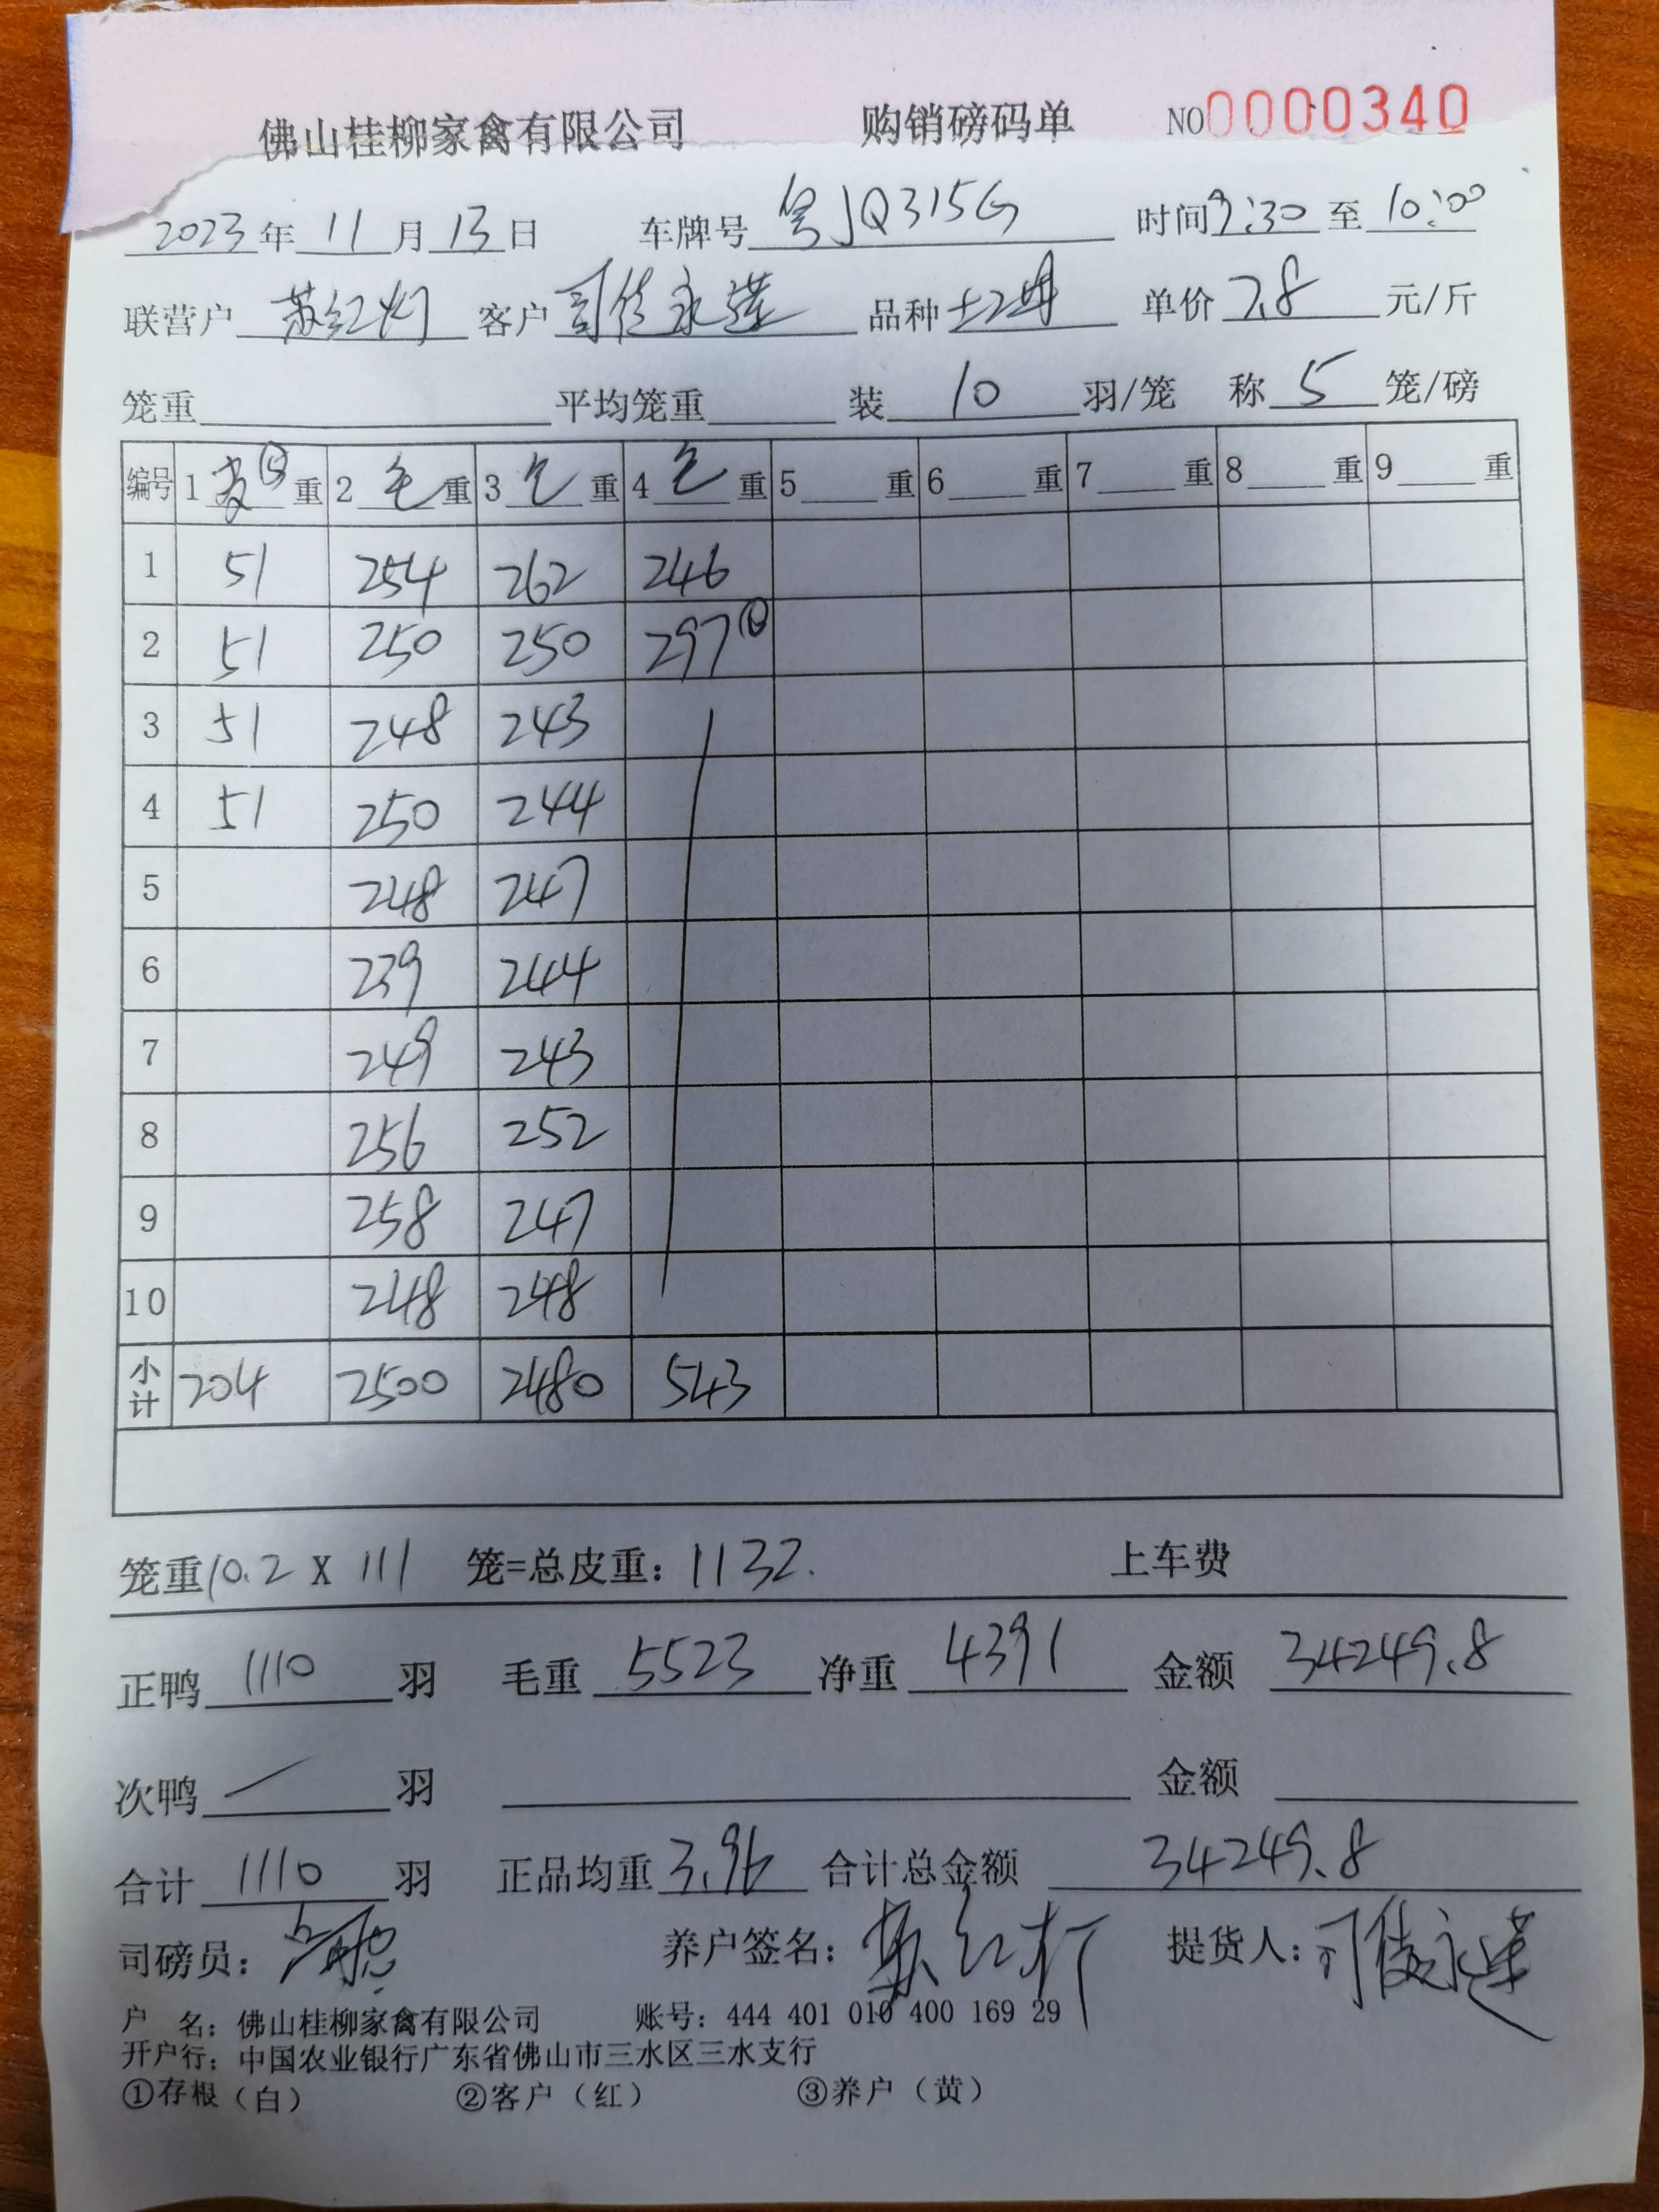 佛山桂柳家禽有限公司 购销磅码单 NO0000340
2023年 11月 13日 车牌号 粤JQ315G 时间9:30 至 10:00
联营户 苏红灯 客户 司徒永莲 品种 单价 7.8 元/斤
笼重 平均笼重 装 10 羽/笼 称 5 笼/磅
编号 1 皮⑤ 重 2 毛 重 3 毛 重 4 毛 重 5 重 6 重 7 重 8 重 9 重
1 51 254 262 246
2 51 250 250 297⑥
3 51 248 243
4 51 250 244
5 248 247
6 239 244
7 249 243
8 256 252
9 258 247
10 248 248
小计 204 2500 2480 543
笼重10.2 X 111 笼=总皮重: 1132. 上车费
正鸭 1110 羽 毛重 5523 净重 4391 金额 34249.8
次鸭 / 羽 金额
合计 1110 羽 正品均重 3.96 合计总金额 34249.8
司磅员: 养户签名: 苏红灯 提货人: 司徒永莲
户 名: 佛山桂柳家禽有限公司 账号: 444 401 010 400 169 29
开户行: 中国农业银行广东省佛山市三水区三水支行
①存根(白) ②客户(红) ③养户(黄)